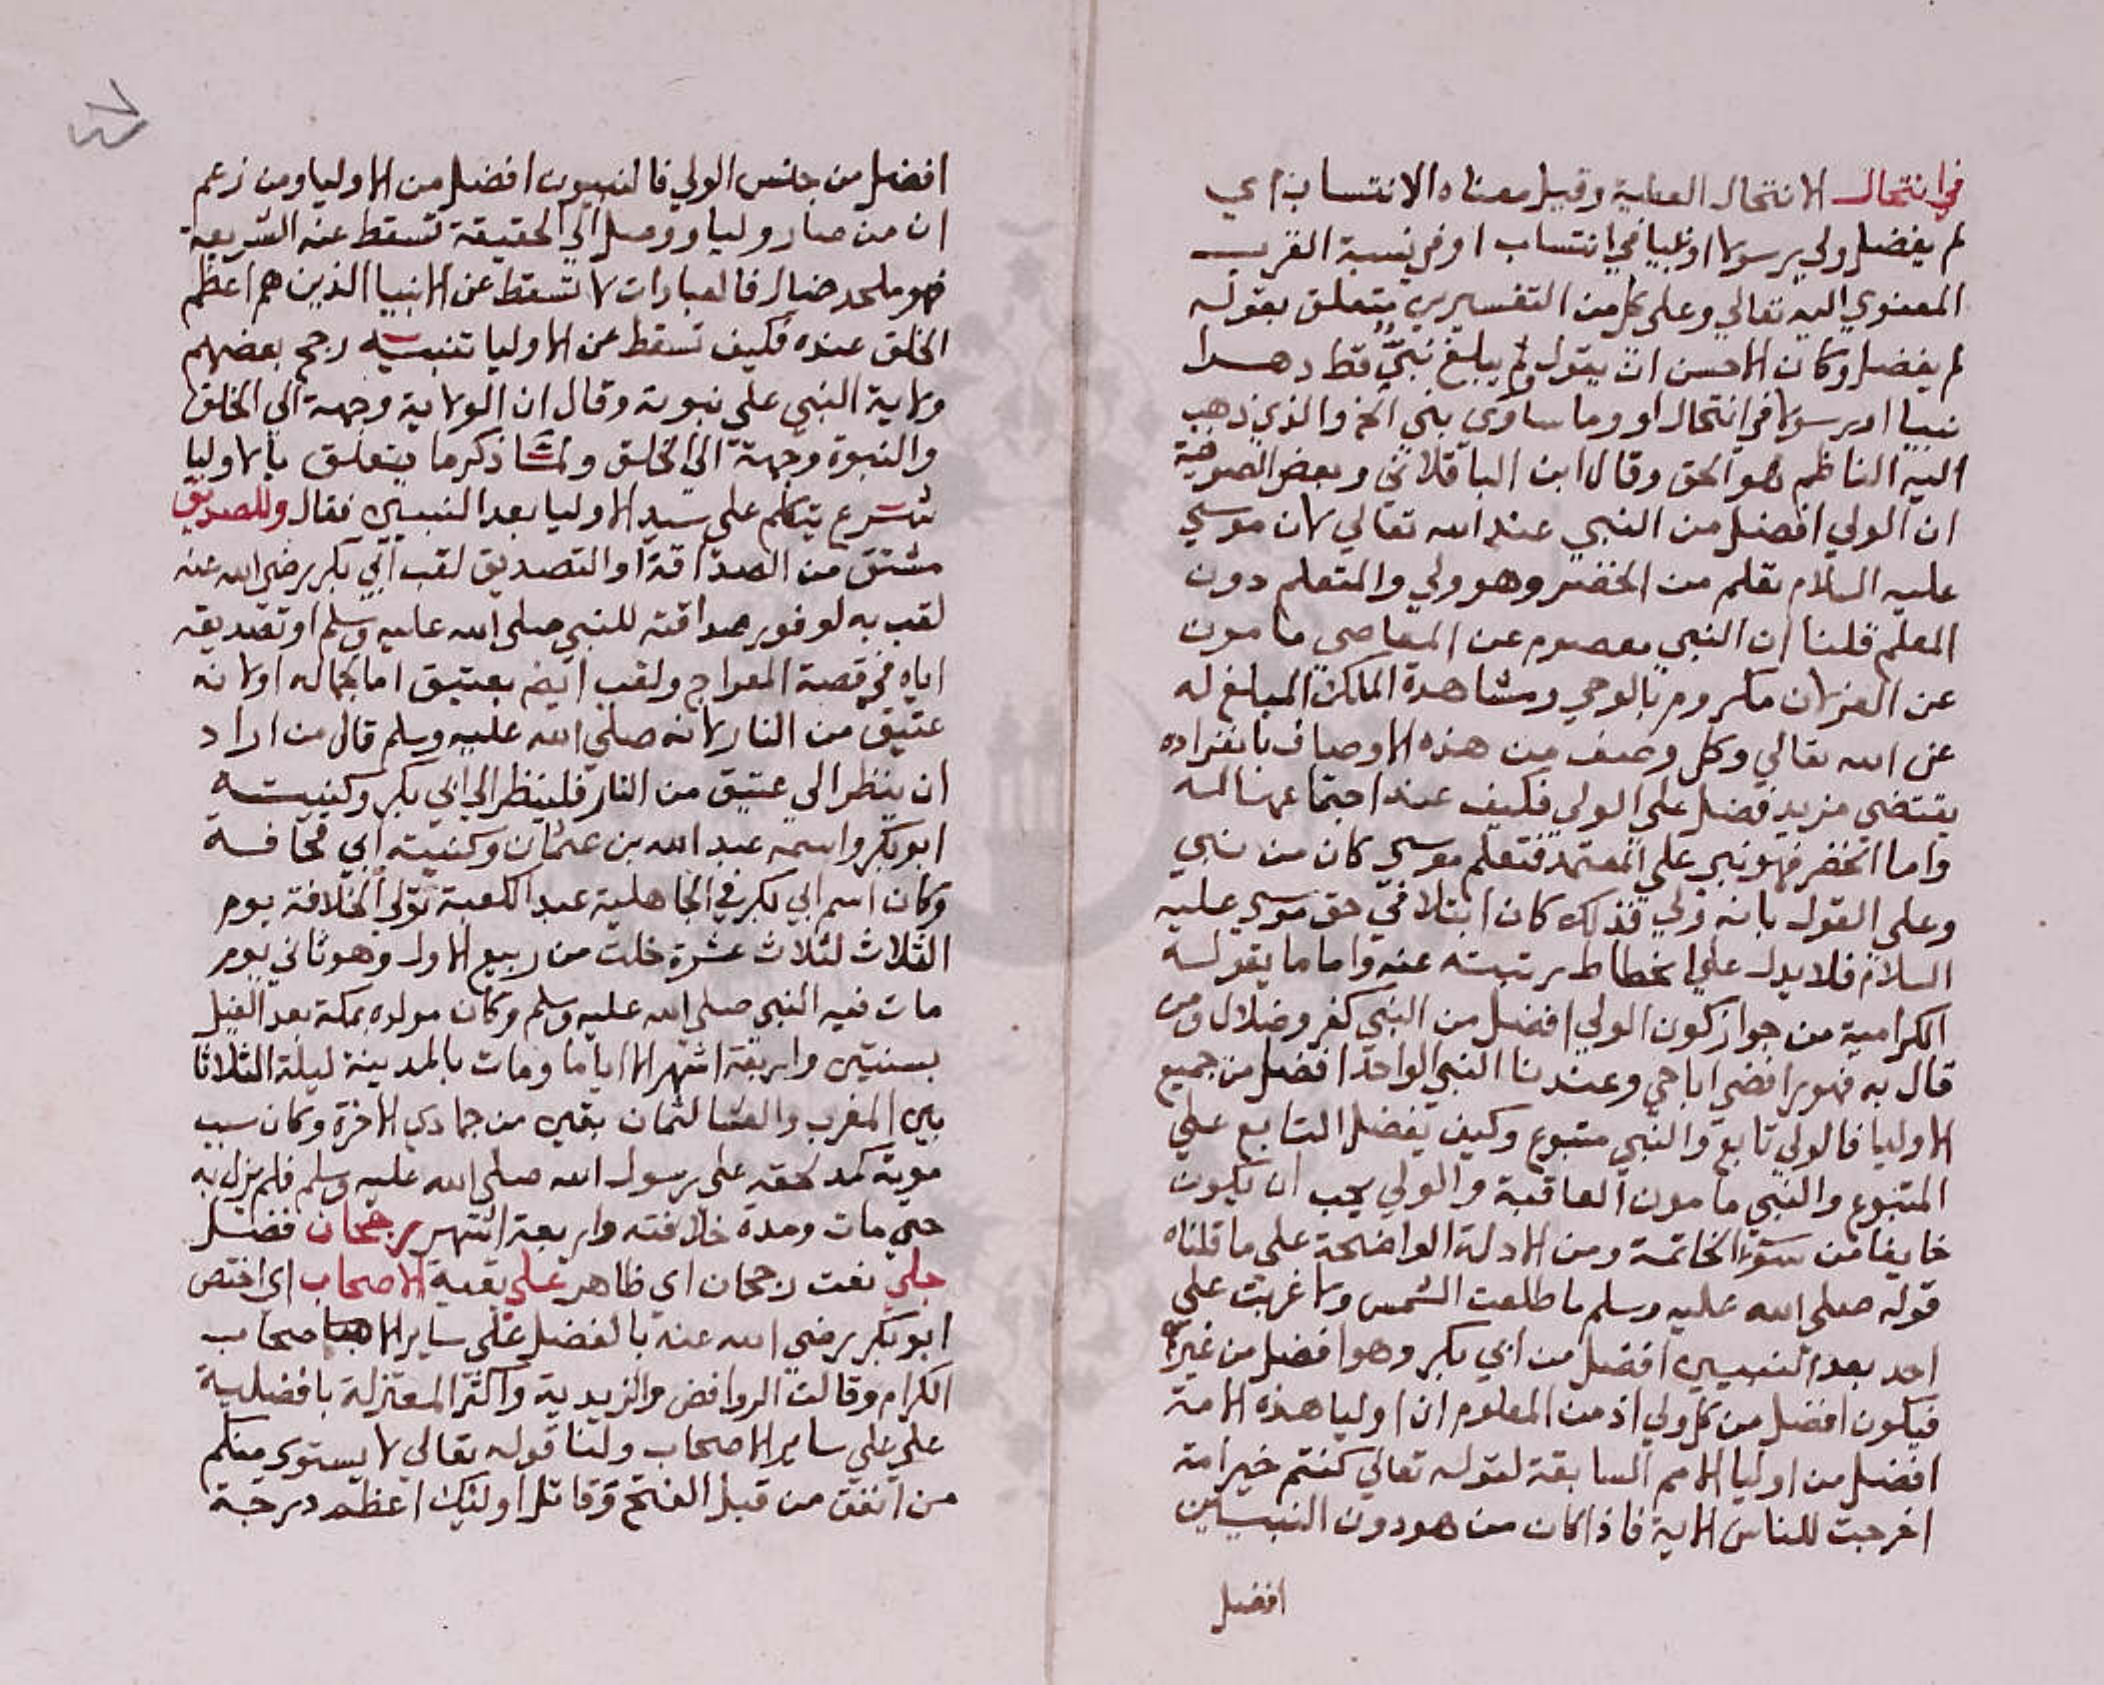 في انتحال الانتحال العطية وقيل معناه الانتساب اي
لم يفضل ولي رسولا او نبيا في انتساب او في نسبة القرب
المعنوي اليه تعالي وعلي كل من التفسيرين يتعلق بقوله
لم يفضل وكان الاحسن ان يقول ولم يبلغ نبي قط دهرا
نبيا او رسولا في انتحال او وما ساوى بني الخ والذي ذهب
اليه الناظم هو الحق وقال ابن الباقلاني وبعض الصوفية
ان الولي افضل من النبي عند الله تعالي لان موسي
عليه السلام تعلم من الخضر وهو ولي والمتعلم دون
المعلم قلنا ان النبي معصوم عن المعاصي مامون
عن العزلان مكروم بالوحي ومشاهدة الملك المبلغ له
عن الله تعالي وكل وصف من هذه الاوصاف بانفراده
يقتضي مزيد فضل علي الولي فكيف عند اجتماعها له
واما الخضر فهو نبي علي المعتمد فتعلم موسي كان من نبي
وعلي القول بانه ولي فذلك كان ابتلا في حق موسي عليه
السلام فلا يدل علي انحطاط رتبته عنه واما ما يقوله
الكرامية من جواز كون الولي افضل من النبي كفر وضلال ومن
قال به فهو رافضي اباحي وعندنا النبي الواحد افضل من جميع
الاوليا فالولي تابع والنبي متبوع وكيف يفضل التابع علي
المتبوع والنبي مامون العاقبة والولي يجب ان يكون
خايفا من سوء الخاتمة ومن الادلة الواضحة علي ما قلناه
قوله صلي الله عليه وسلم ما طلعت الشمس ولا غربت علي
احد بعد النبيين افضل من ابي بكر وهو افضل من غيره
فيكون افضل من كل ولي اذ من المعلوم ان اوليا هذه الامة
افضل من اوليا الامم السابقة لقوله تعالي كنتم خير امة
اخرجت للناس الاية فاذا كان من هو دون النبيين
افضل
افضل من جنس الولي فالنبيون افضل من الاوليا ومن زعم
ان من صار وليا ووصل الي الحقيقة تسقط عنه الشريعة
فهو ملحد ضال فالعبادات لا تسقط عن الانبيا الذين هم اعظم
الخلق عنده فكيف تسقط عن الاوليا تنبيه رجح بعضهم
ولاية النبي علي نبوته وقال ان الولاية وجهة الي الخلق
والنبوة وجهة الي الخلق ولما ذكر ما يتعلق بالاوليا
شرع يتكلم علي سيد الاوليا بعد النبيين فقال وللصديق
مشتق من الصداقة او التصديق لقب ابي بكر رضي الله عنه
لقب به لوفور صداقته للنبي صلي الله عليه وسلم او تصديقه
اياه في قصة المعراج ولقب ايضم بعتيق اما لجماله او لانه
عتيق من النار لانه صلي الله عليه وسلم قال من اراد
ان ينظر الي عتيق من النار فلينظر الي ابي بكر وكنيته
ابو بكر واسمه عبد الله بن عثمان وكنيته ابي قحافة
وكان اسم ابي بكر في الجاهلية عبد الكعبة تولي الخلافة يوم
الثلاث لثلاث عشرة خلت من ربيع الاول وهو ثاني يوم
مات فيه النبي صلي الله عليه وسلم وكان مولده بمكة بعد الفيل
بسنتين واربعة اشهر الا اياما ومات بالمدينة ليلة الثلاثا
بين المغرب والعشا لثمان بقين من جمادي الاخرة وكان سبب
موته كمد لحقه علي رسول الله صلي الله عليه وسلم فلم يزل به
حتي مات ومدة خلافته واربعة اشهر رجحان فضل
جلي نعت رجحان اي ظاهر علي بقية الاصحاب اي اختص
ابو بكر رضي الله عنه بالفضل علي ساير الاصحاب
الكرام وقالت الروافض والزيدية واكثر المعتزلة بافضلية
علي علي ساير الاصحاب ولنا قوله تعالي لا يستوي منكم
من انفق من قبل الفتح وقاتل اوليك اعظم درجة